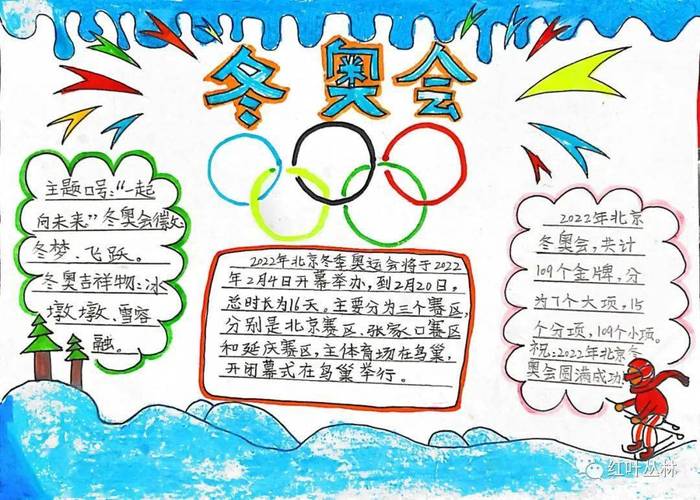 冬奥会
主题口号:“一起
向未来”冬奥会徽:
冬梦、飞跃。
冬奥吉祥物:冰
墩墩、雪容
融。
2022年北京冬季奥运会将于2022
年2月4日开幕举办,到2月20日,
总时长为16天。主要分为三个赛区,
分别是北京赛区、张家口赛区
和延庆赛区,主体育场在鸟巢,
开闭幕式在鸟巢举行。
2022年北京
冬奥会,共计
109个金牌,分
为7个大项,15
个分项,109个小项。
祝:2022年北京冬
奥会圆满成功.
红叶丛林